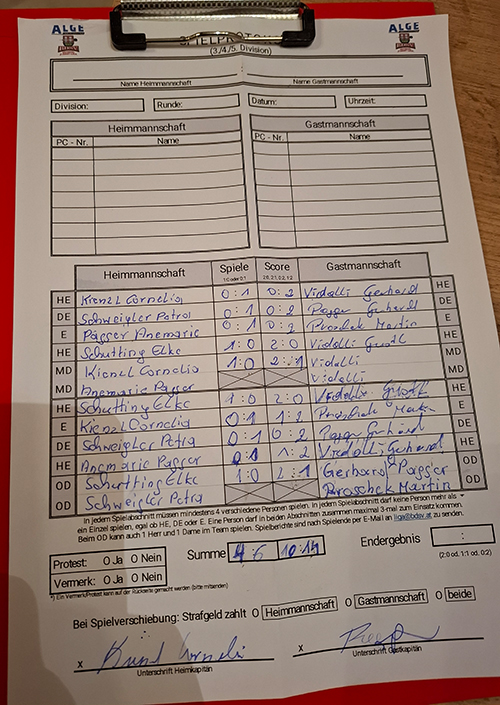 ALGE ALGE
(3./4./5. Division)
Name Heimmannschaft Name Gastmannschaft
Division: Runde: Datum: Uhrzeit:
Heimmannschaft Gastmannschaft
PC - Nr. Name PC - Nr. Name
Heimmannschaft Spiele Score Gastmannschaft
1:0 oder 0:1 2:0, 2:1, 0:2, 1:2
HE Kienzl Cornelia 0:1 0:2 Vidalli Gerhard HE
DE Schweigler Petra 0:1 0:2 Gerhard DE
E Passer Anemarie 0:1 0:2 Martin E
HE Schutting Elke 1:0 2:0 Vidalli HE
MD Kienzl Cornelia 1:0 2:1 Vidalli MD
MD Anemarie Passer Vidalli MD
HE Schutting Elke 1:0 2:0 Vidalli HE
E Kienzl Cornelia 0:1 1:2 E
DE Schweigler Petra 0:1 0:2 Gerhard DE
HE Anemarie Passer 0:1 1:2 Vidalli Gerhard HE
OD Schutting Elke 1:0 2:1 Gerhard Passer OD
OD Schweigler Petra Proschek Martin OD
In jedem Spielabschnitt müssen mindestens 4 verschiedene Personen spielen. In jedem Spielabschnitt darf keine Person mehr als
ein Einzel spielen, egal ob HE, DE oder E. Eine Person darf in beiden Abschnitten zusammen maximal 3-mal zum Einsatz kommen.
Beim OD kann auch 1 Herr und 1 Dame im Team spielen. Spielberichte sind nach Spielende per E-Mail an liga@bdsv.at zu senden.
Protest: O Ja O Nein Summe 4:6 10:14 Endergebnis :
Vermerk: O Ja O Nein (2:0 od. 1:1 od. 0:2)
*) Ein Vermerk/Protest kann auf der Rückseite gemacht werden (bitte mitsenden)
Bei Spielverschiebung: Strafgeld zahlt O Heimmannschaft O Gastmannschaft O beide
x x
Unterschrift Heimkapitän Unterschrift Gastkapitän